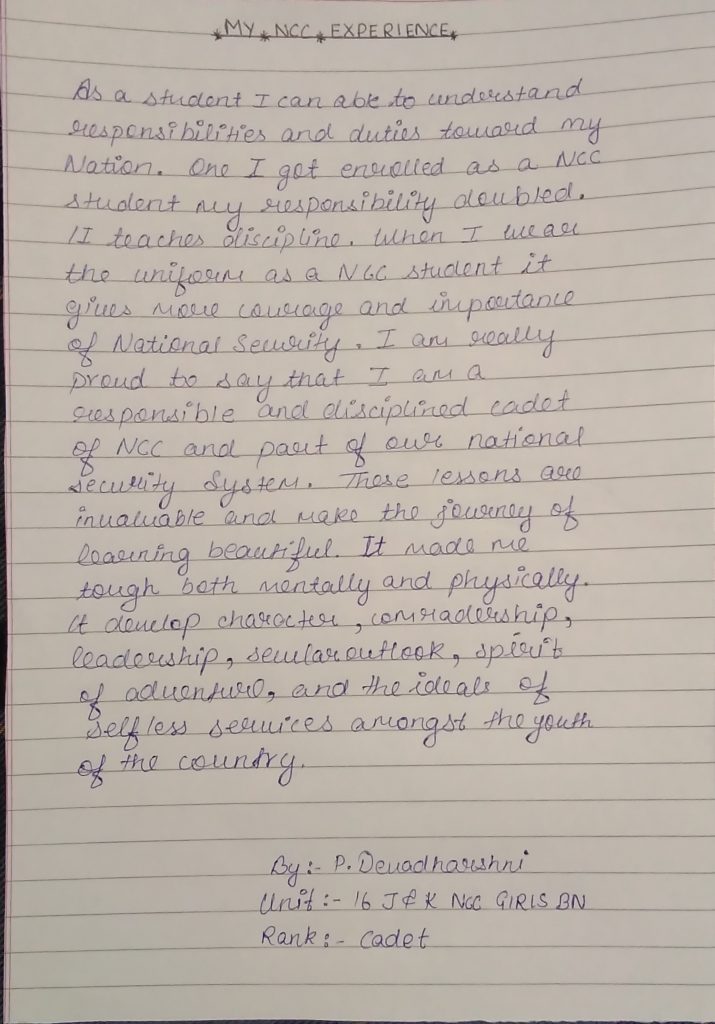 *MY*NCC*EXPERIENCE*
As a student I can able to understand
responsibilities and duties toward my
Nation. One I got enrolled as a NCC
student my responsibility doubled.
It teaches discipline. When I wear
the uniform as a NCC student it
gives more courage and importance
of National Security. I am really
proud to say that I am a
responsible and disciplined cadet
of NCC and part of our national
security System. These lessons are
invaluable and make the journey of
learning beautiful. It made me
tough both mentally and physically.
It develop character, comradership,
leadership, secular outlook, spirit
of adventure, and the ideals of
selfless services amongst the youth
of the country.
By:- P. Devadharshni
Unit:- 16 J & K NCC GIRLS BN
Rank:- Cadet